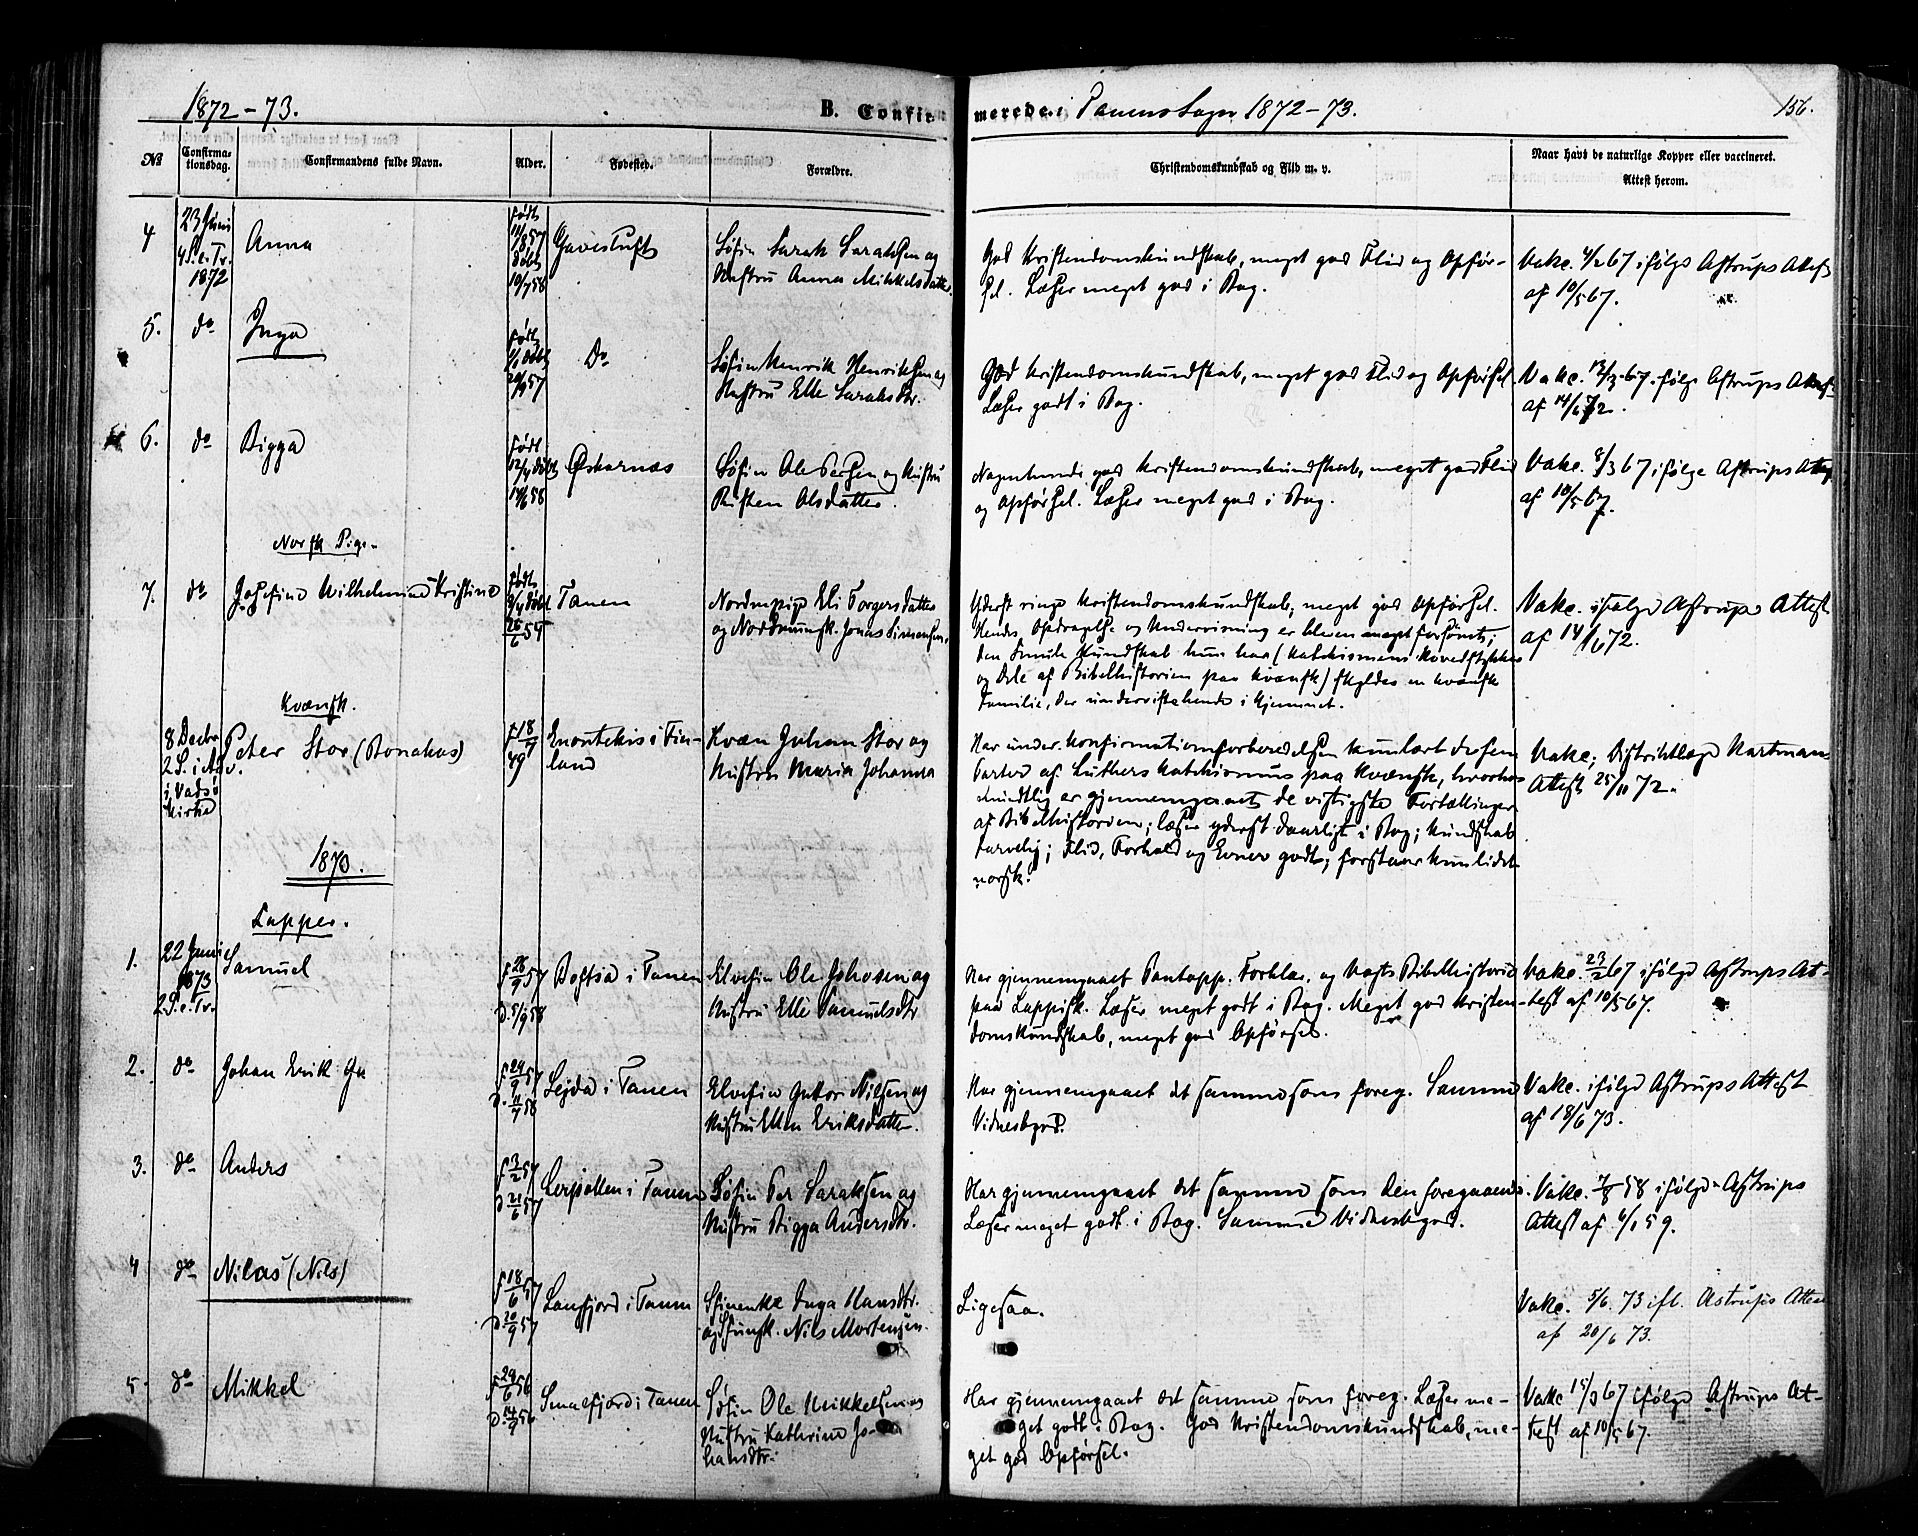 1872-73.
B. Confirmerede i Tanens Sogn 1872-73.
156.
No
Confirmationsdag.
Confirmandens fulde Navn.
Alder.
Fødested.
Forældre.
Christendomskundskab og Flid m. v.
Naar havd de naturlige Kopper eller vaccineret.
Attest herom.
4
23 Juni
4 S. e. Tr.
1872
Anna
født
11/8 57
døbt
10/7 58
Søfin Sarak Saraksen og
Hustru Anna Mikkelsdatter.
God Kristendomskundskab, meget god Flid og Opfør-
sel. Læser meget god i Bog.
Vakc. ifølge Astrups Attest
af 10/5 67.
5.
do
Inga
født
døbt
Do
Søfin Henrik Henriksen og
Hustru Elle Saraksdtr.
God Kristendomskundskab, meget god Flid og Opførsel
Læser godt i Bog.
Vakc. 12/3 67 ifølge Astrups Attest
af 14/6 72.
6.
do
Bigga
født
døbt
17/6 58
Søfin Ole Persen og Hustru
Risten Olsdatter.
Nogenlunde god Kristendomskundskab, meget god Flid
og Opførsel. Læser meget god i Bog.
Vakc. 8/3 67 ifølge Astrups Attest
af 10/5 67.
Norsk Pige.
7.
do
Josefine Wilhelmine Kristine
født
døbt
Tanen
Nordm.pige Eli Torgersdatter
og Nordmungk. Jonas Simensen.
Yderst ringe Kristendomskundskab; meget god Opførsel.
Hendes Opdragelse og Undervisning er bleven meget forsømt;
den Smule Kundskab hun har (Katekismens Hovedstykker
og Dele af Bibelhistorien paa kvænsk) skyldes en kvænsk
Familie, der underviste hende i Hjemmet.
Vakc. ifølge Astrups Attest
af 14/6 72.
Kvænsk.
8 Decbr
2 S. i Adv.
i Vadsø
Kirke
Peter Stor (Bonakas)
f 18/7
49
Enontekis i Fin-
land
Kvæn Johan Stor og
Hustru Maria Johanna
Har under Konfirmationsforberedelsen kun lært de fem
Parter af Luthers Katekismus paa kvænsk, hvorhos
mundtlig er gjennemgaaet de vigtigste Fortællinger
af Bibelhistorien; læser yderst daarligt i Bog; Kundskab
tarvelig; Flid, Forhold og Evner godt; forstaar kun lidet
norsk.
Vakc; Distriktlæge Hartmans
Attest 25/11 72.
1873.
Lapper.
1.
22 Juni
1873
2 S. e. Tr.
Samuel
f 26/9 57
d. 5/9 58
Boftsa i Tanen
Elvefin Ole Johnsen og
Hustru Elle Samuelsdtr
Har gjennemgaaet Pontopp. Forklar. og Vogts Bibelhistorie
paa Lappisk. Læser meget godt i Bog. Meget god Kristen-
domskundskab, meget god Opførsel.
Vakc. 23/2 67 ifølge Astrups At-
test af 10/5 67.
2.
do
Johan Erik
f 24/9 57
d. 11/7 58
Sejda i Tanen
Elvefin Nilsen og
Hustru Ellen Eriksdatter.
Har gjennemgaaet det samme som foreg. Samme
Vidnesbyrd.
Vakc. ifølge Astrups Attest
af 18/6 73.
3.
do
Anders
f 3/2 57
d 21/6 57
Lerpollen i Tanen
Søfin Per Saraksen og
Hustru Bigga Andersdtr.
Har gjennemgaaet det samme som den foregaaende.
Læser meget godt i Bog. Samme Vidnesbyrd.
Vakc. 7/8 58 ifølge Astrups
Attest af 6/1 59.
4
do
Nilas (Nils)
f 18/6 57
d 20/9 57
Langfjord i Tanen
Sfinenke Inga Hansdtr.
og Sfungk. Nils Mortensen.
Ligesaa.
Vakc. 5/6. 73 ifl. Astrups Attest
af 20/6 73.
5.
do
Mikkel
f 24/6 56
d. 14/9 56
Smalfjord i Tanen
Søfin Ole Mikkelsen og
Hustru Kathrine Jo-
hansdtr.
Har gjennemgaaet det samme som foreg. Læser me-
get godt i Bog. God Kristendomskundskab, me-
get god Opførsel.
Vakc 15/3 67 ifølge Astrups At-
test af 10/5 67.